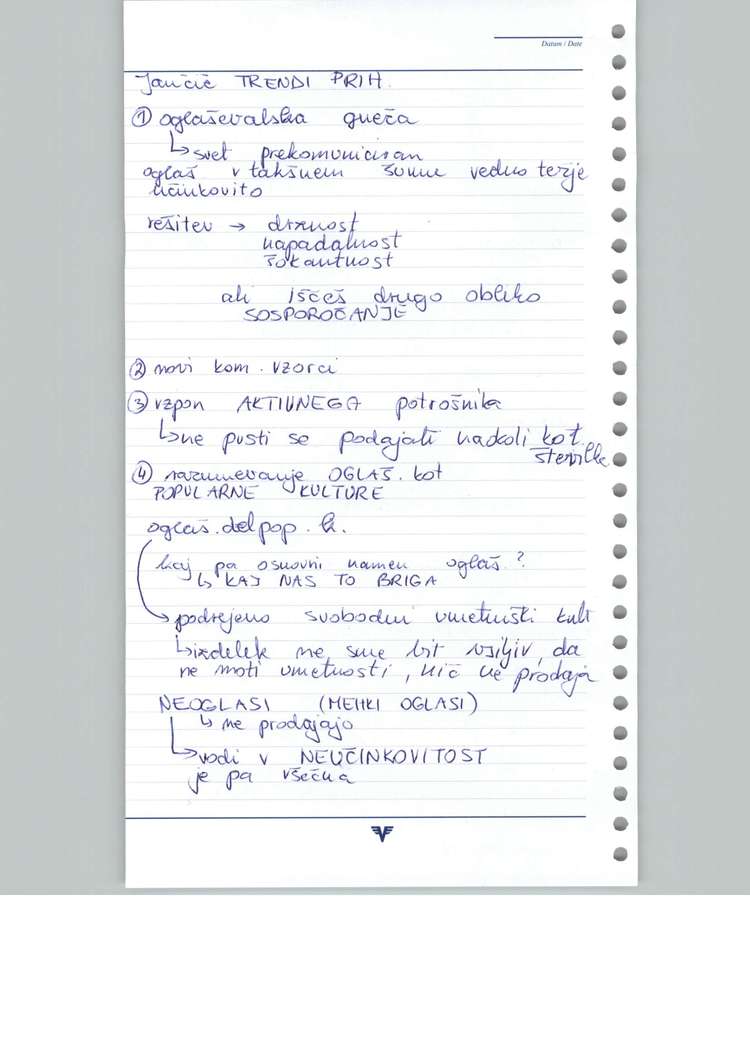 Datum / Date
Jančič TRENDI PRIH.
① oglaševalska gneča
↳ svet prekomuniciran
oglas v takšnem šumu vedno težje
učinkovito
rešitev → drznost
napadalnost
šokantnost
ali iščeš drugo obliko
SOSPOROČANJE
② novi kom. vzorci
③ vzpon AKTIVNEGA potrošnika
↳ ne pusti se podajati naokoli kot
številke
④ razumevanje OGLAŠ. kot
POPULARNE KULTURE
oglaš. del pop. k.
kaj pa osnovni namen oglaš.?
↳ KAJ NAS TO BRIGA
→ podrejeno svobodni umetniški kult
↳ izdelek ne sme bit vsiljiv, da
ne moti umetnosti, nič ne prodaja
NEOGLASI (MEHKI OGLASI)
↳ ne prodajajo
↳ vodi v NEUČINKOVITOST
je pa všečna